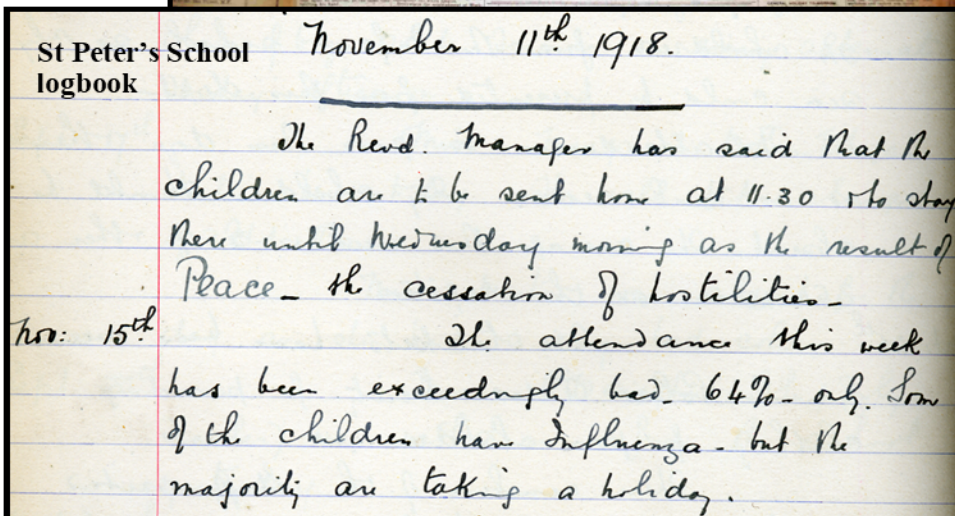 St Peter's School
logbook
November 11th 1918.
The Revd. Manager has said that the
children are to be sent home at 11.30 & to stay
there until Wednesday morning as the result of
Peace - the cessation of hostilities -
Nov: 15th The attendance this week
has been exceedingly bad - 64% - only. Some
of the children have Influenza - but the
majority are taking a holiday.